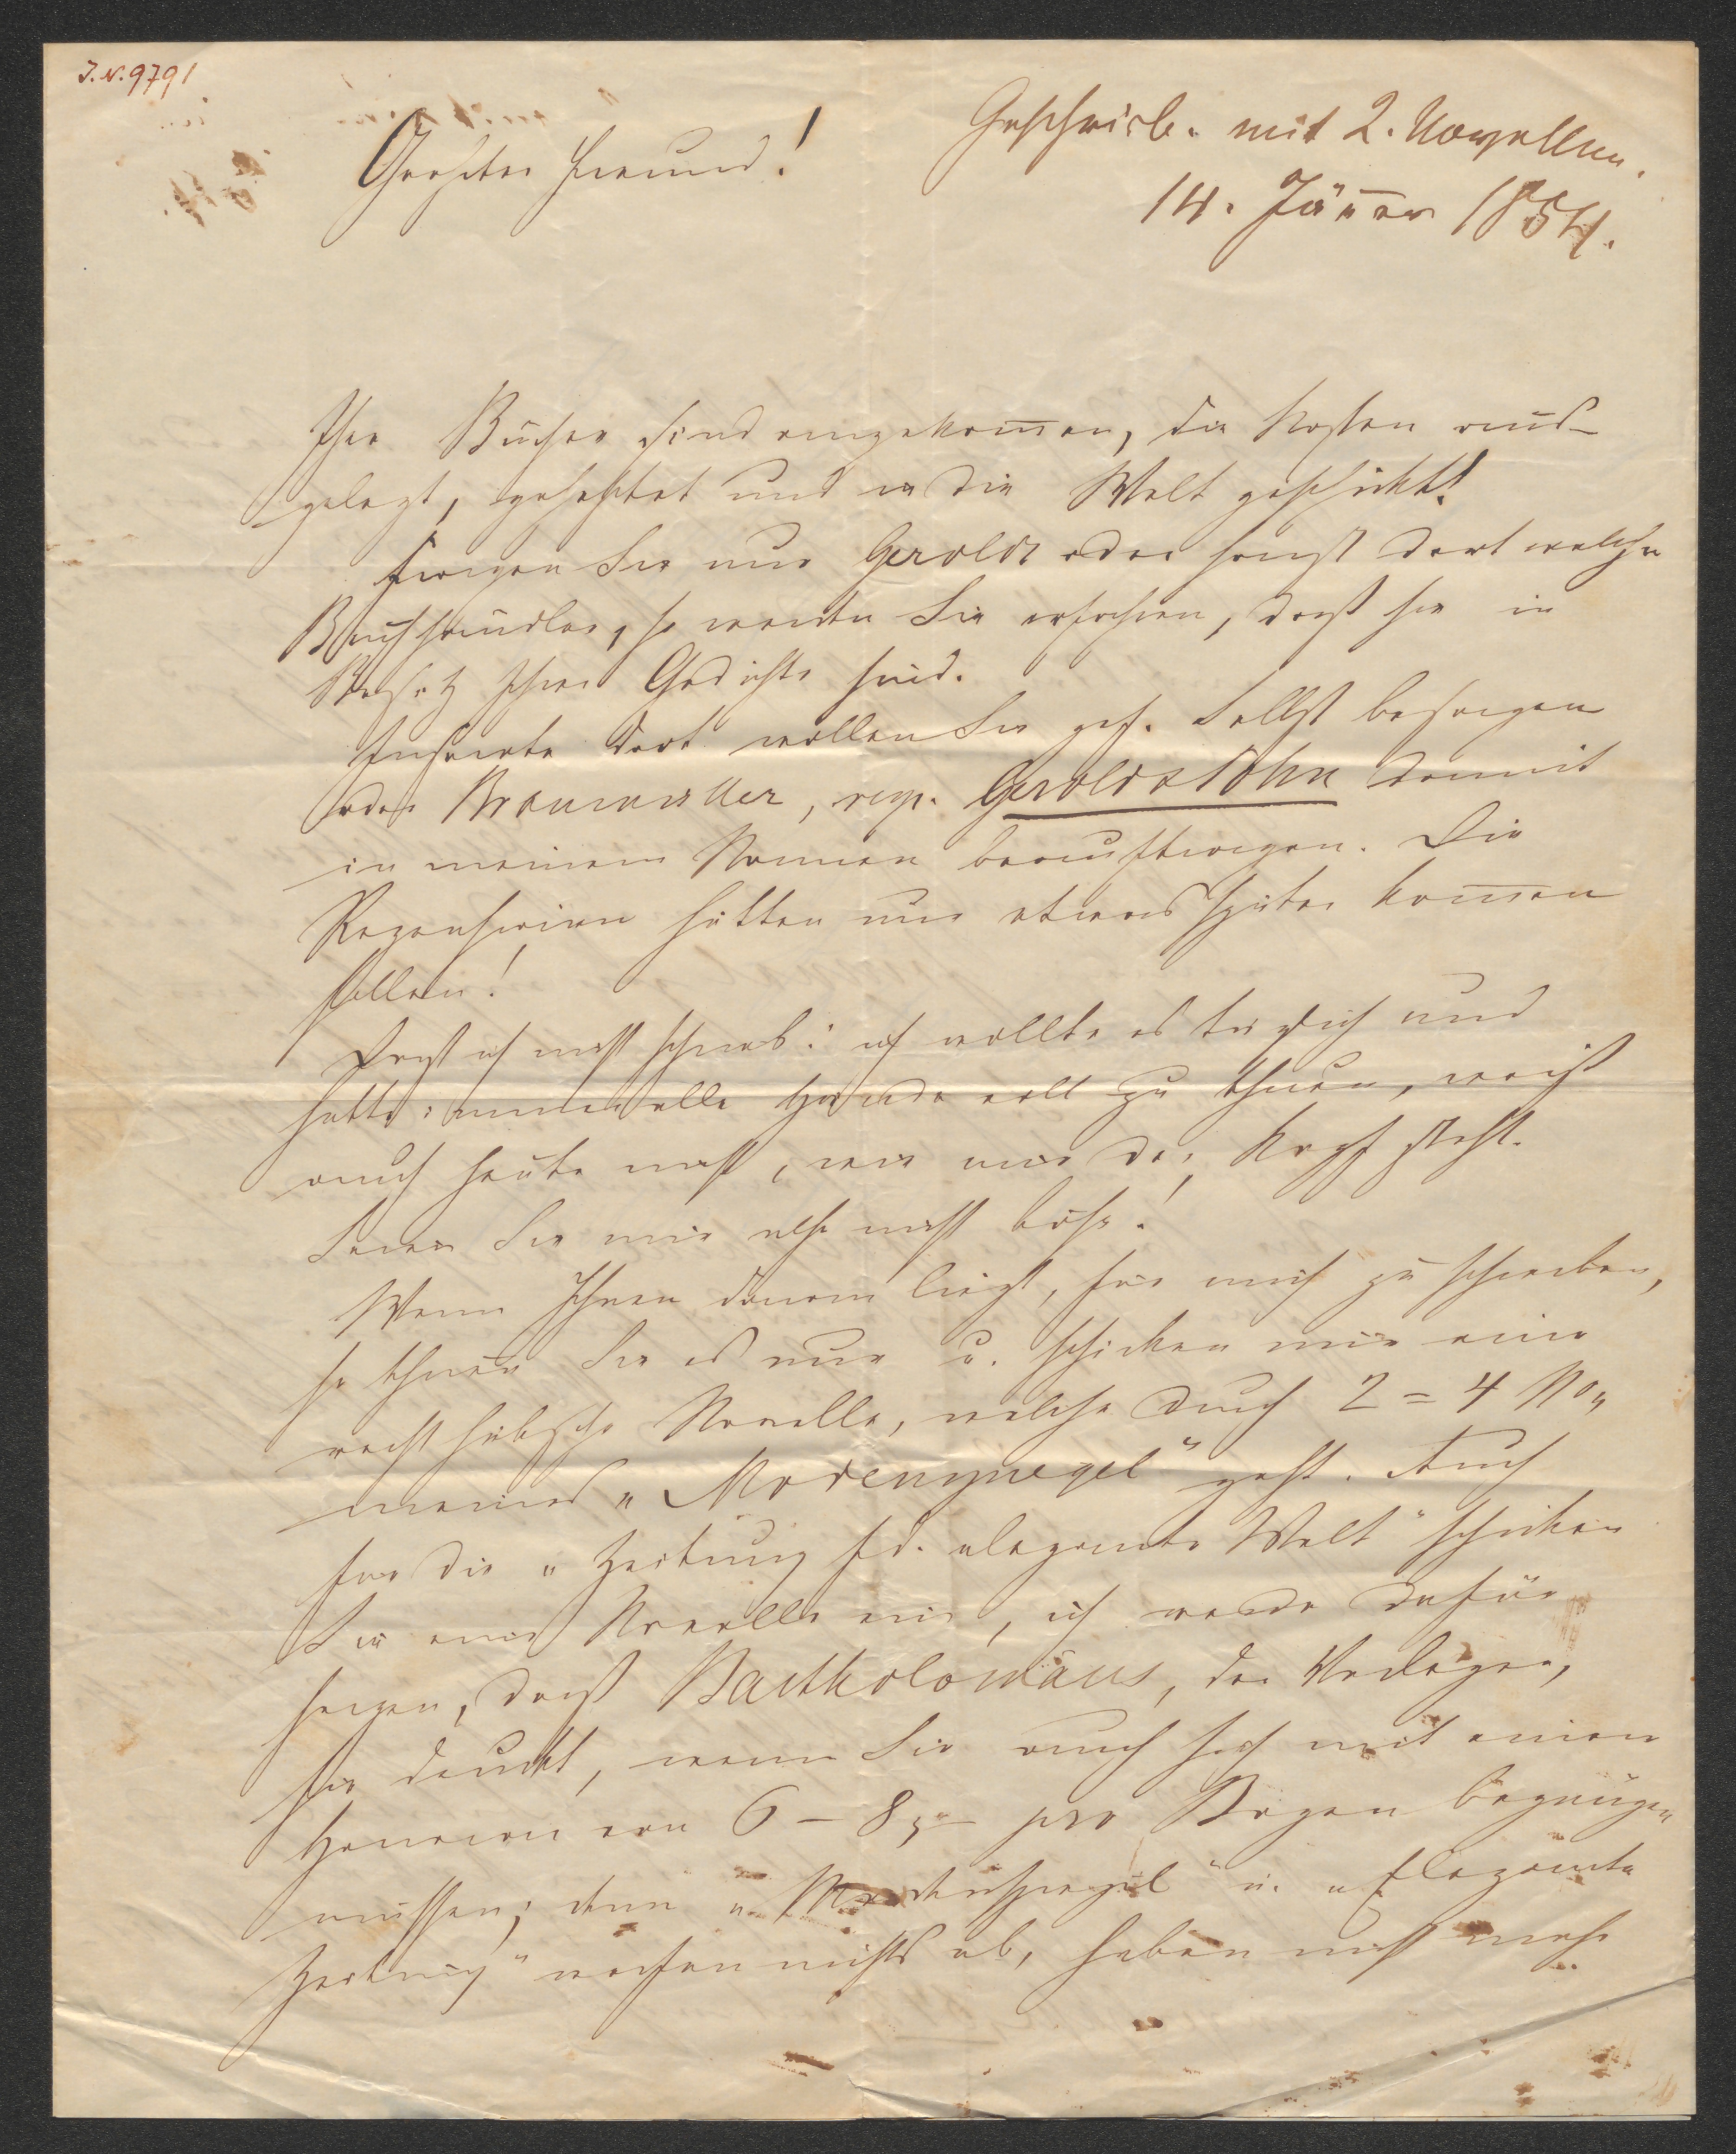 J. N. 9791
Geschrieb. mit 2. Novellen.
14. Jäner 1854.
Geehrter Freund!
Ihre Bücher sind angekommen, die Kosten aus-
gelegt, geheftet und in die Welt geschickt!
Fragen Sie nur Gerold oder sonst dort welche
Buchhändler, so werden Sie erfahren, daß sie in
Besitz Ihrer Gedichte sind.
Inserate dort wollen Sie gef. selbst besorgen
oder Braumüller, resp. Gerolds Sohn damit
in meinem Namen beauftragen. Die
Rezensionen hätten nur etwas später kommen
sollen!
Daß ich nicht schrieb: ich wollte es täglich und
hatte immer alle Hände voll zu thuen, weiß
auch heute nicht, wie mir der Kopf steht.
Seien Sie mir also nicht böse!
Wenn Ihnen daran liegt, für mich zu schreiben,
so thuen Sie es nur u. schicken mir eine
recht hübsche Novelle, welche durch 2 = 4 No.
meines „Modenspiegel" geht. Auch
für die „Zeitung f. d. elegante Welt" schicken
Sie eine Novelle ein, ich werde dafür
sorgen, daß Bartholomäus, der Verleger,
sie druckt, wenn Sie auch sich mit einem
Honorar von 6 – 8 pro Bogen begnügen
müssen; denn „Modenspiegel" u. „Elegante
Zeitung" werfen nichts ab, haben nicht mehr